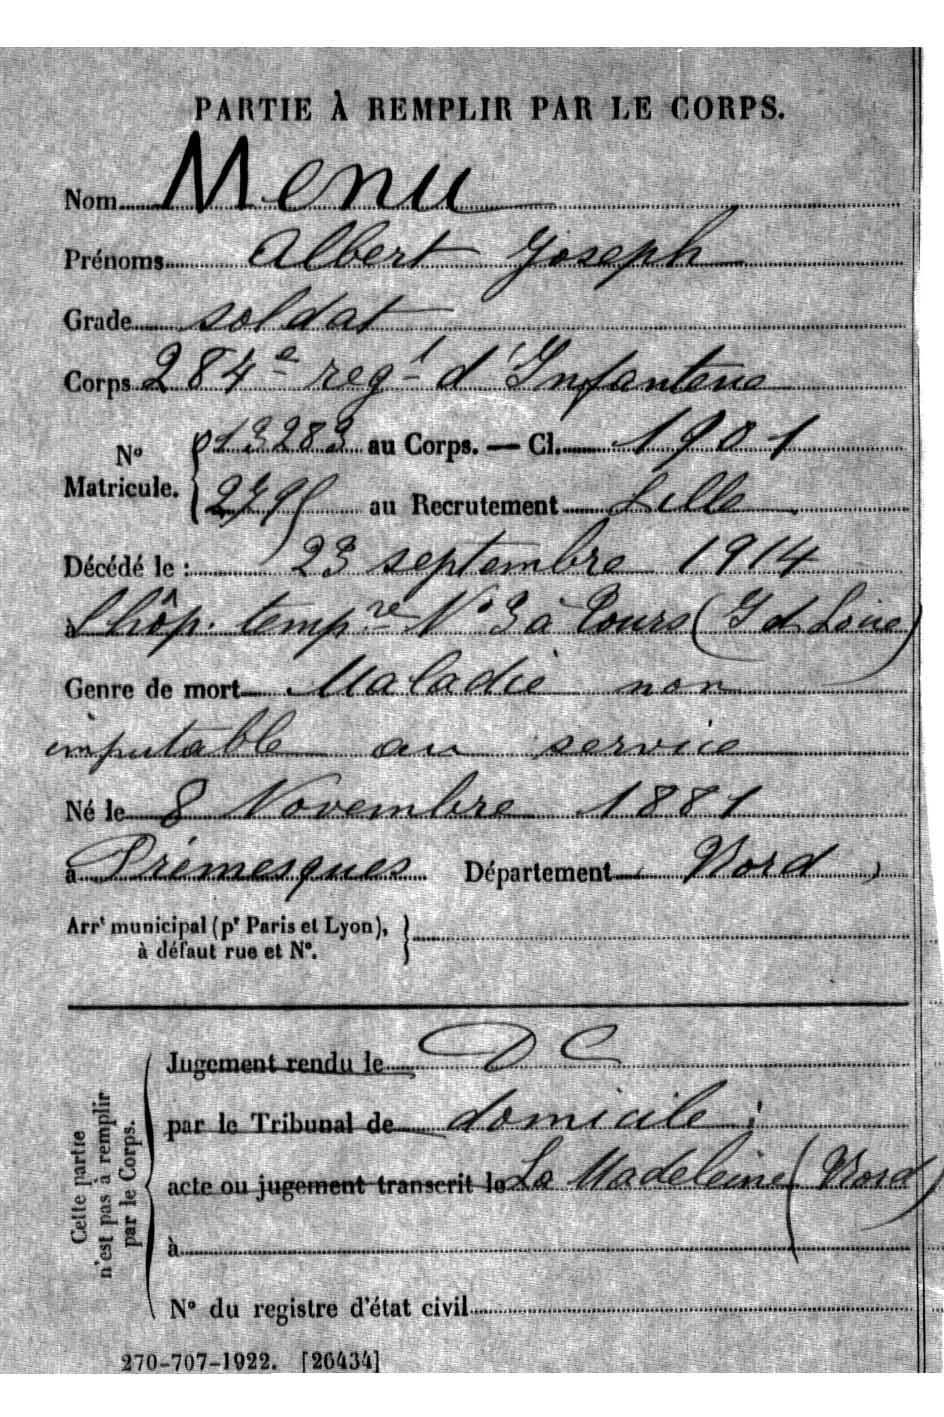 PARTIE À REMPLIR PAR LE CORPS.
Nom Menu
Prénoms Albert Joseph
Grade soldat
Corps 284e regt d'Infanterie
No Matricule. { 013283 au Corps. — Cl. 1901
au Recrutement Lille
Décédé le : 23 septembre 1914
à L'hôp. tempre No 3 à Tours (I et Loire)
Genre de mort Maladie non
imputable au service
Né le 8 Novembre 1881
à Prémesques Département Nord
Arrt municipal (pr Paris et Lyon), }
à défaut rue et No.
Cette partie n'est pas à remplir par le Corps.
Jugement rendu le D C
par le Tribunal de domicile :
acte ou jugement transcrit le La Madeleine (Nord)
à
No du registre d'état civil
270-707-1922. [26434]